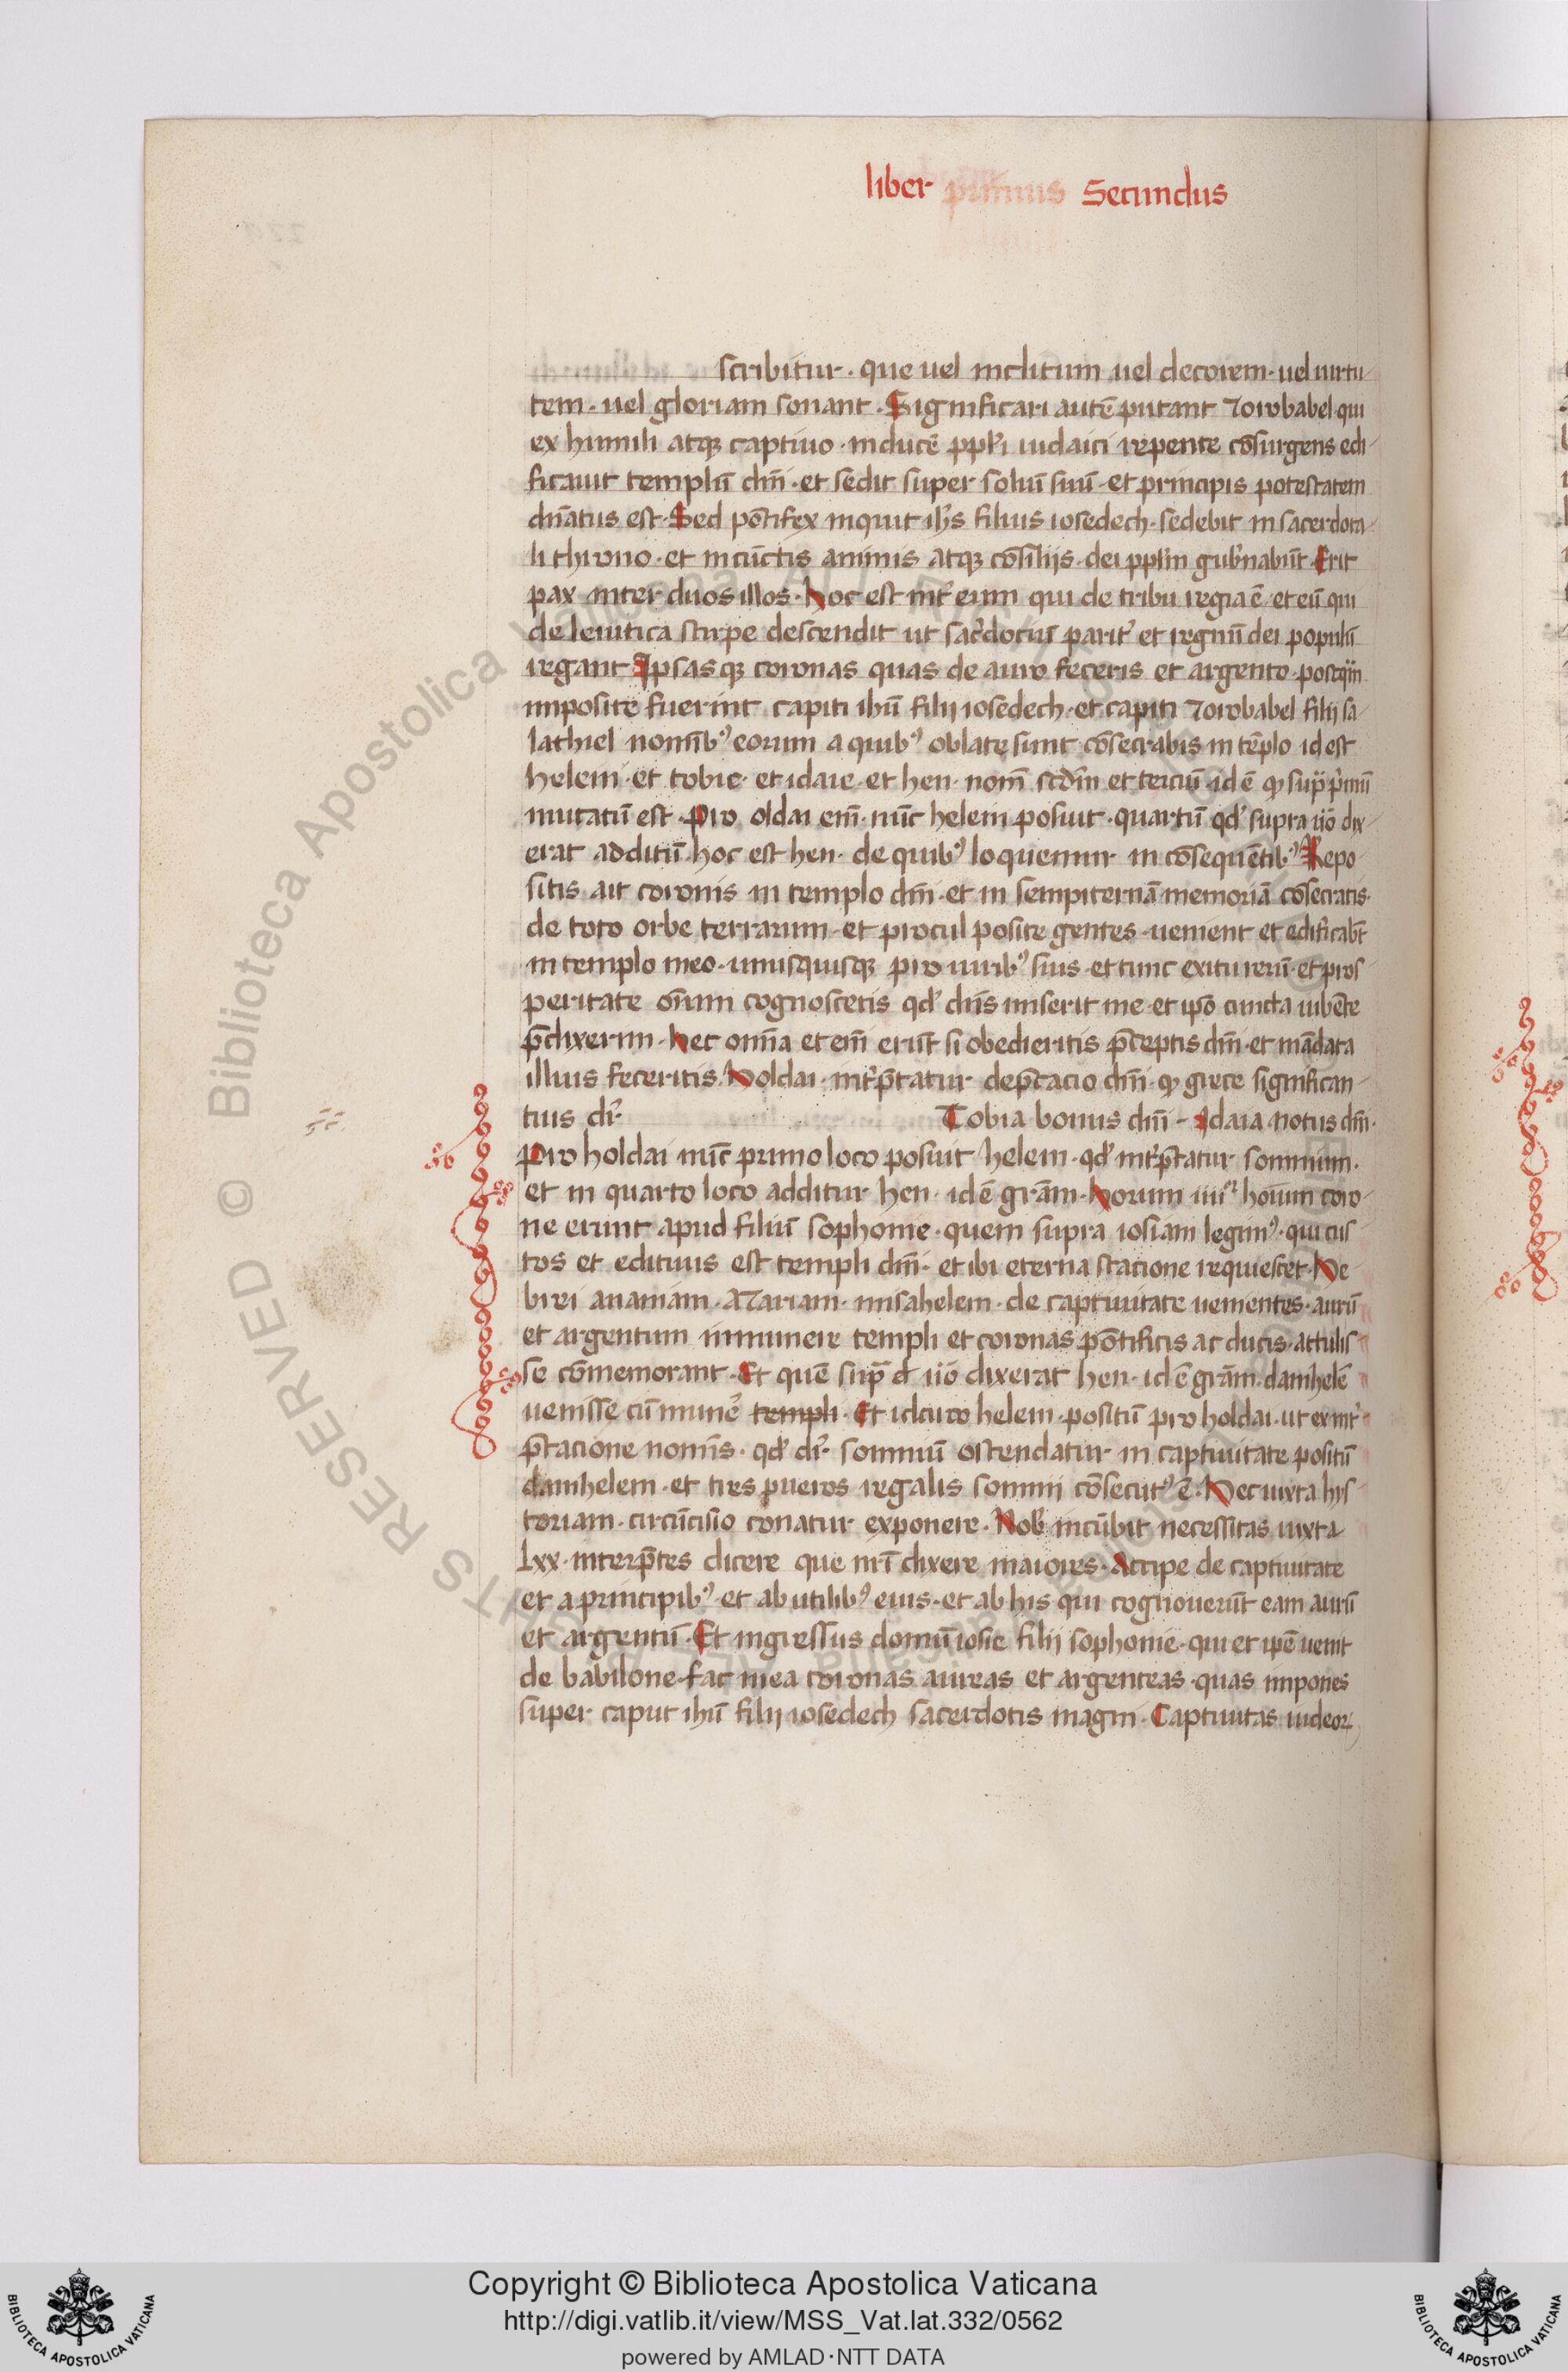 liber primus Secundus
scribitur. que uel inclitum uel decorem. uel uirtu-
tem. uel gloriam sonant. Significari autē putant Zorobabel qui
ex humili atqꝫ captiuo. in ducē ppłi iudaici repente cōsurgens edi-
ficauit templū dn̄i. et sedit super soliū suū. et principis potestatem
dn̄atus est. Sed pōtifex inquit ih̄s filius iosedech. sedebit in sacerdota-
li throno. et in cūctis animis atqꝫ cōsilijs. dei ppłm gub̾nabūt. Erit
pax inter duos illos. Hoc est int̾ eum qui de tribu regia ē. et eū qui
de leuitica stirpe descendit ut sac̾dociū parit̾ et regnū dei populū
regant. Ipsasqꝫ coronas quas de auro feceris et argento. postq̄m
imposite fuerint capiti ihū filij iosedech. et capiti Zorobabel filij sa-
lathiel nomībꝰ eorum a quibꝰ oblate sunt cōsecrabis in tēplo id est
helem. et tobie. et idaie. et hen. nom̄ scd̄m et terciū. id ē qꝫ sup̄ p̾mū
mutatū est. Pro oldai em̄. nūc helem posuit. quartū qd̾ supra nō dix-
erat additū. hoc est hen. de quibꝰ loquemur in cōsequētibꝰ. Repo-
sitis ait coronis in templo dn̄i. et in sempiternā memoriā cōsecratis.
de toto orbe terrarum. et procul posite gentes. uenient et edificabt̄
in templo meo. unusquisqꝫ pro uiribꝰ suis. et tunc exitu rerū. et pros-
peritate om̄ium cognoscetis qd̾ dn̄s miserit me. et ip̄o cuncta iubēte
p̄dixerim. Hec om̄ia et em̄ erūt si obedieritis p̄ceptis dn̄i. et mādata
illius feceritis. Holdai. int̾p̄tatur dep̄cacio dn̄i. qꝫ grece significan-
tius dr̄. Tobia bonus dn̄i - Idaia notus dn̄i.
Pro holdai nūc primo loco posuit helem. qd̾ int̾p̄tatur somnium.
et in quarto loco additur hen. id ē grām. Horum iiiior hoīum coro-
ne erunt apud filiū sophonie. quem supra iosiam legimꝰ. qui cus-
tos et edituus est templi dn̄i. et ibi eterna stacione requiescet. He-
brei ananiam. aZariam. misahelem. de captiuitate uenientes. aurū
et argentum in munere templi et coronas pōtificis ac ducis. attulis-
se cōmemorant. Et quē sup̄ d nō dixerat hen. id ē grām. damhelē
uenisse cū mune̾ templi. Et idcirco helem. positū pro holdai. ut ex int̾-
p̄tacione nomīs. qd̾ dr̄. somniū ostendatur in captiuitate positū
damhelem. et tres pueros regalis somnij cōsecutꝰ ē. Hec iuxta hys-
toriam. circūcisio conatur exponere. Nob̾ incūbit necessitas iuxta
Lxx. interp̄tes dicere que nr̄i dixere maiores. Accipe de captiuitate
et a principibꝰ. et ab utilibꝰ eius. et ab his qui cognouerūt eam aurū
et argentū. Et ingressus domū iosie filij sophonie. qui et ip̄e uenit
de babilone. fac in ea coronas aureas et argenteas. quas impones
super caput ihū filij iosedech sacerdotis magni. Captiuitas iudeoꝝ
© Biblioteca Apostolica Vaticana
Copyright © Biblioteca Apostolica Vaticana
http://digi.vatlib.it/view/MSS_Vat.lat.332/0562
powered by AMLAD·NTT DATA
BIBLIOTECA APOSTOLICA VATICANA
BIBLIOTECA APOSTOLICA VATICANA